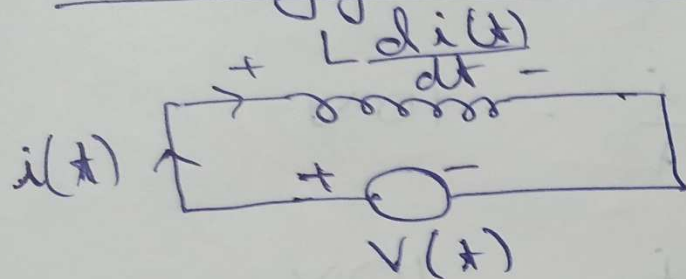 L di(t)/dt
+ -
i(t)
+ -
V(t)